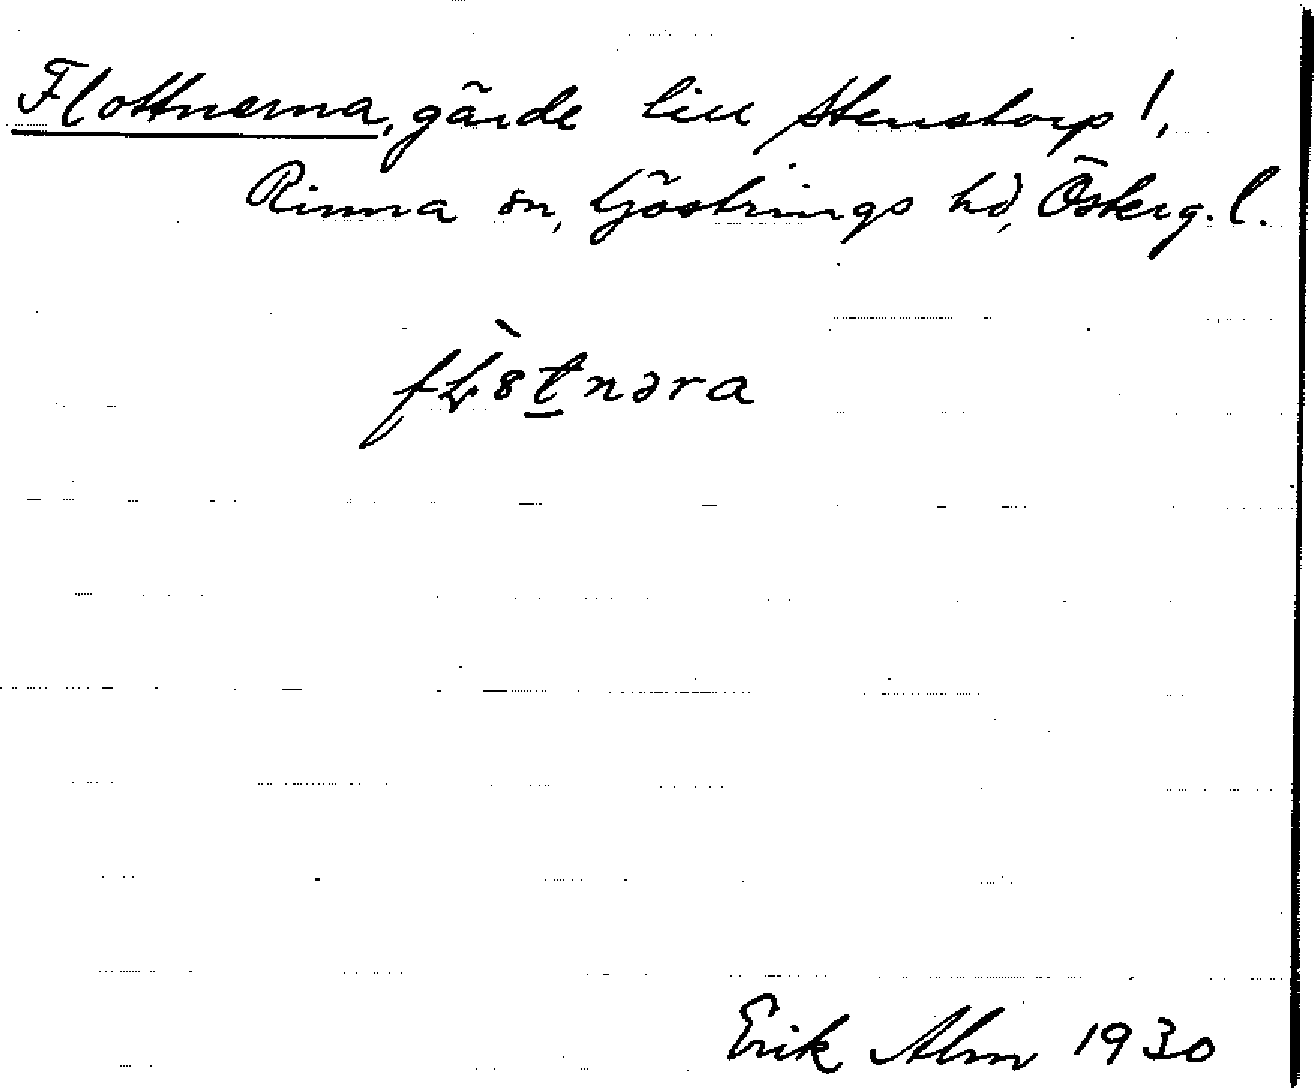 Flottnerna, gärde till Stenstorp!,
Rinna sn, Göstrings hd, Österg. l.
fḷ8tnəra
Erik Alm 1930